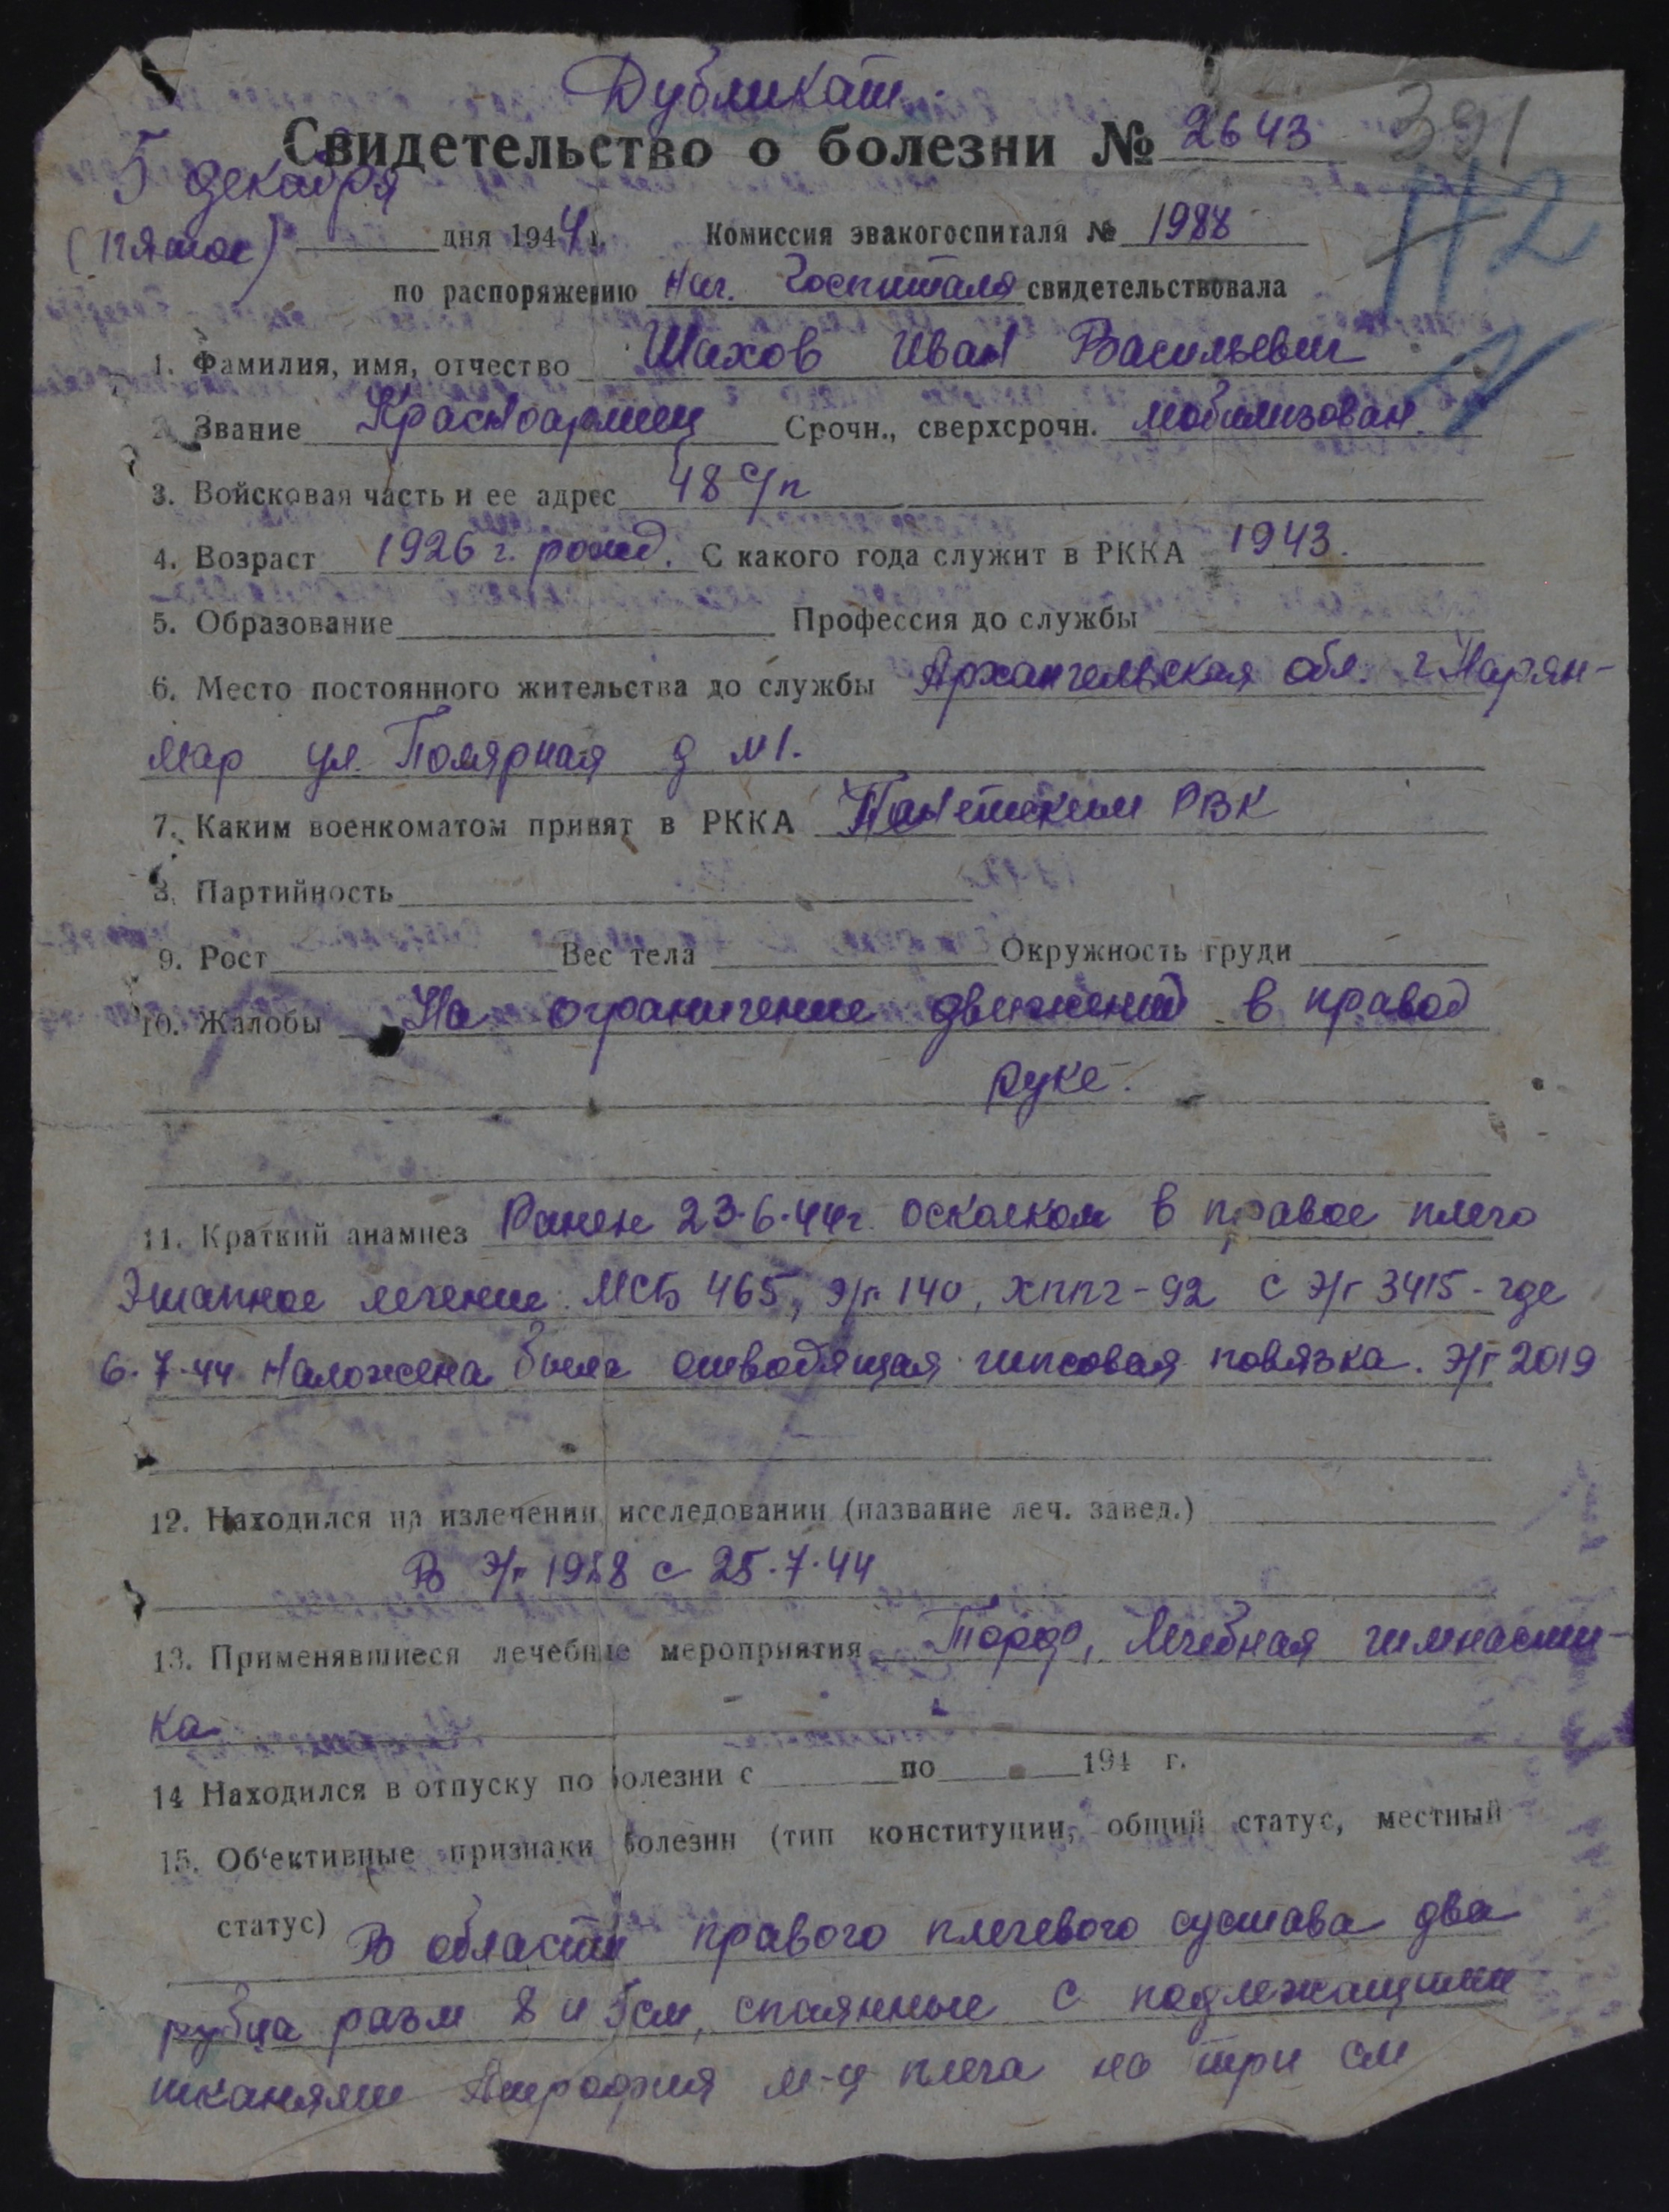 Дубликат.
Свидетельство о болезни № 2643
391
5 декабря
Н2
(Пяток) дня 1944 г. Комиссия эвакогоспиталя № 1988
по распоряжению Нач. Госпиталя свидетельствовала
1. Фамилия, имя, отчество Шахов Иван Васильевич
2. Звание Красноармеец Срочн., сверхсрочн. мобилизован.
3. Войсковая часть и ее адрес 48 с/п
4. Возраст 1926 г. рожд. С какого года служит в РККА 1943.
5. Образование Профессия до службы
6. Место постоянного жительства до службы Архангельская обл. г. Нарян-
мар ул. Полярная д №1.
7. Каким военкоматом принят в РККА РВК
8. Партийность
9. Рост Вес тела Окружность груди
10. Жалобы На ограничение движений в правой
руке.
11. Краткий анамнез Ранен 23.6.44г. осколком в правое плечо
Этапное лечение: МСБ 465, Э/г 140, ХППГ-92 с Э/г 3415 - где
6.7.44 наложена была отводящая гипсовая повязка. Э/г 2019
12. Находился на излечении, исследовании (название леч. завед.)
В Э/г 1988 с 25.7.44
13. Применявшиеся лечебные мероприятия Торф, Лечебная гимнасти-
ка
14 Находился в отпуску по болезни с по 194 г.
15. Об‘ективные признаки болезни (тип конституции, общий статус, местный
статус) В области правого плечевого сустава два
рубца разм 8 и 5см, спаянные с подлежащими
тканями Атрофия м-ц плеча на три см